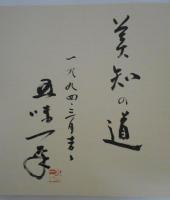 美知の道
一九九四・三月吉日
五味一